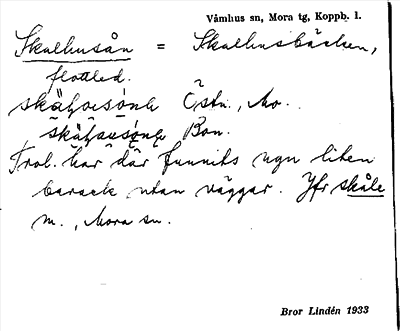 Våmhus sn, Mora tg, Koppb. l.
Skalhusån = Skalhusbäcken,
flottled.
Östn., Mo.
Bon.
Trol. har där funnits ngn liten
barack utan väggar. Jfr skåle
m., Mora sn.
Bror Lindén 1933